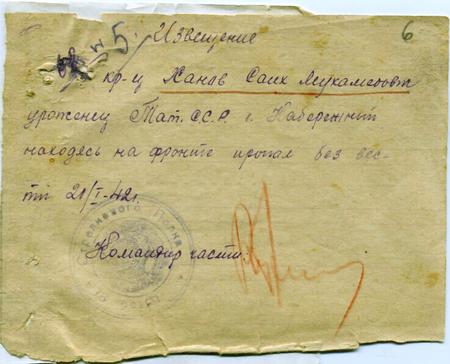 № 5. Извещение 6
кр-ц Ханов Саих Мухамедовт
уроженец Тат. С.С.Р. г. Набережный
находясь на фронте пропал без вес-
ти 21/I-42г.
Командир части: